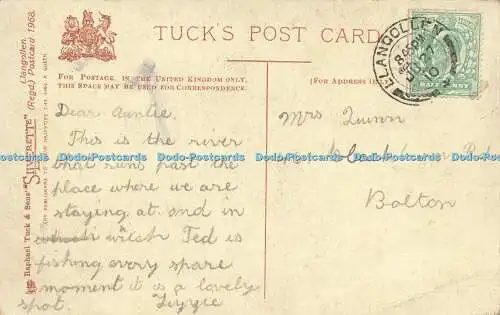 TUCK'S POST CARD
FOR POSTAGE, IN THE UNITED KINGDOM ONLY,
THIS SPACE MAY BE USED FOR CORRESPONDENCE.
(FOR ADDRESS ON
Raphael Tuck & Sons' "SILVERETTE"
Llangollen.
(Regd.) Postcard 1968.
LLANGOLLEN
8.45PM
27
10
HALFPENNY
Dear Auntie.
This is the river
that runs past the
place where we are
staying at. and in
which Ted is
fishing every spare
moment it is a lovely
spot. Lizzie
Mrs Quinn
Bolton
Dodo-Postcards Dodo-Postcards Dodo-Postcards Dodo-Postcards Dodo-Postcards